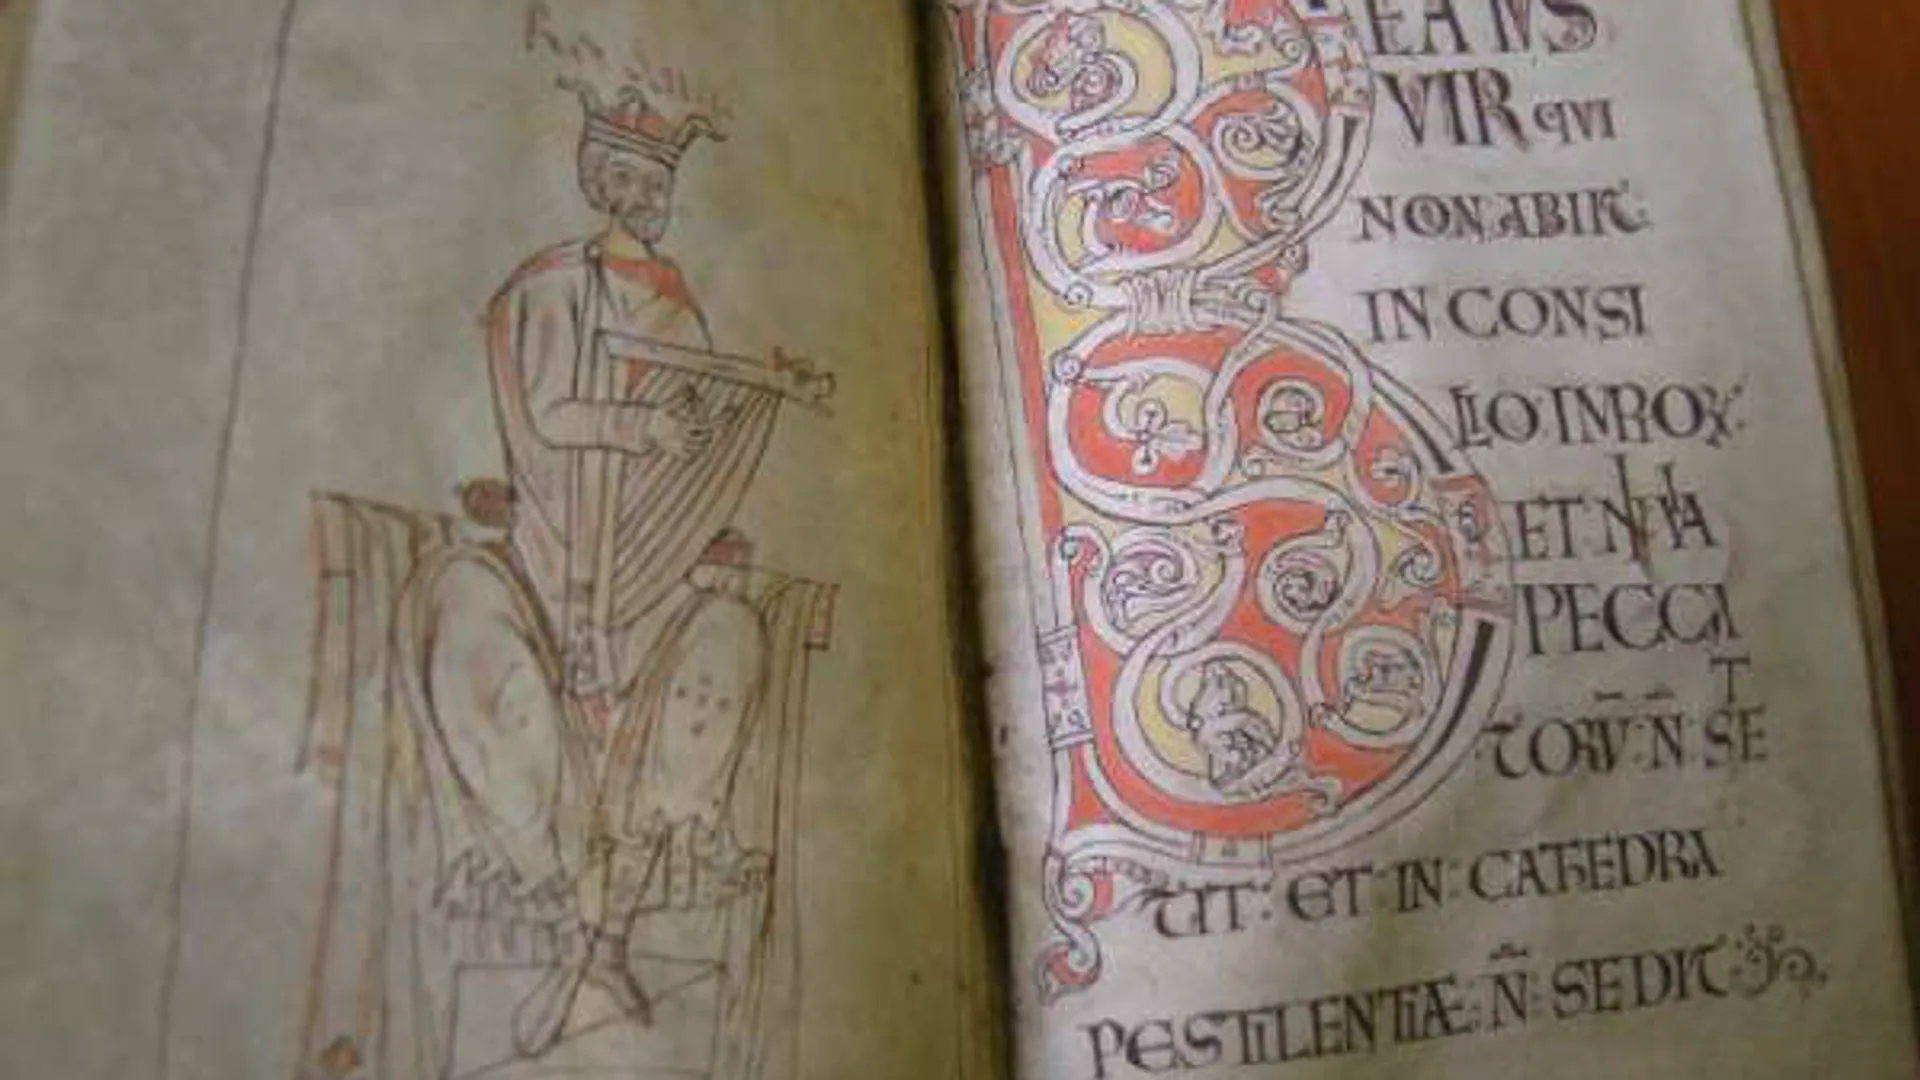 BEATVS
VIR QVI
NON ABIIT
IN CONSI
LIO INPIOX
ET N VIA
PECCA
TORV̅ N̅ SE
TIT: ET IN CATHEDRA
PESTILENTIÆ: N̅: SEDIT